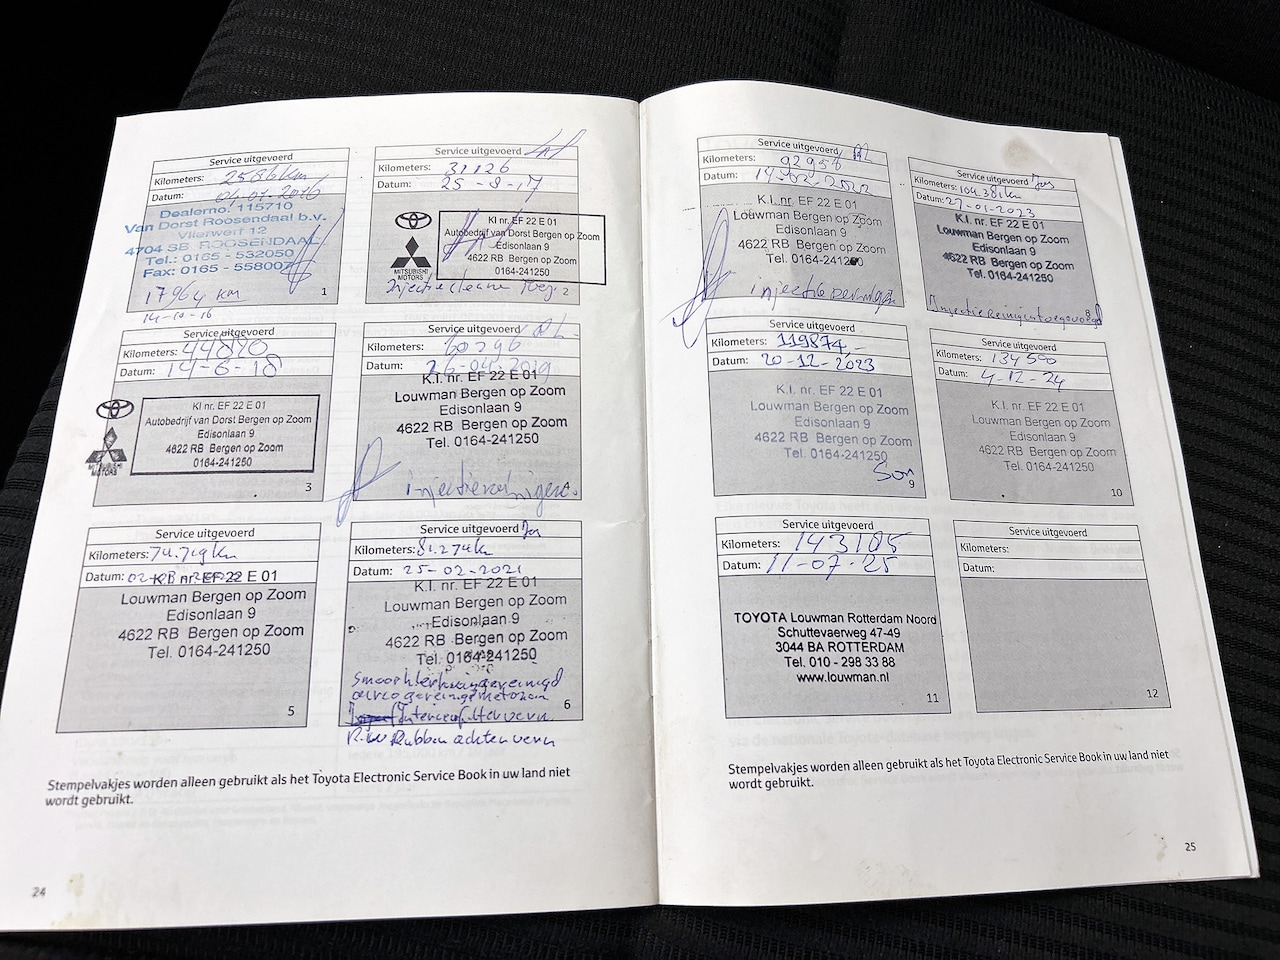 Service uitgevoerd
Kilometers: 2586 km
Datum: 04-01-2016
Dealerno. 115710
Van Dorst Roosendaal b.v.
Vlierwerf 12
4704 SB ROOSENDAAL
Tel.: 0165 - 532050
Fax: 0165 - 558007
1
17964 km
14-10-16
Service uitgevoerd
Kilometers: 31126
Datum: 25-8-17
KI nr. EF 22 E 01
Autobedrijf van Dorst Bergen op Zoom
Edisonlaan 9
4622 RB Bergen op Zoom
0164-241250
MITSUBISHI
MOTORS
Injectie cleaner toeg.
2
Service uitgevoerd
Kilometers: 44890
Datum: 14-6-18
KI nr. EF 22 E 01
Autobedrijf van Dorst Bergen op Zoom
Edisonlaan 9
4622 RB Bergen op Zoom
0164-241250
MITSUBISHI
MOTORS
3
Service uitgevoerd
Kilometers: 60296
Datum: 26-04-2019
K.I. nr. EF 22 E 01
Louwman Bergen op Zoom
Edisonlaan 9
4622 RB Bergen op Zoom
Tel. 0164-241250
4
Service uitgevoerd
Kilometers: 74.719km
Datum:
K.I. nr. EF 22 E 01
Louwman Bergen op Zoom
Edisonlaan 9
4622 RB Bergen op Zoom
Tel. 0164-241250
5
Service uitgevoerd Jos
Kilometers: 81.274km
Datum: 25-02-2021
K.I. nr. EF 22 E 01
Louwman Bergen op Zoom
Edisonlaan 9
4622 RB Bergen op Zoom
Tel. 0164-241250
Smoorklephuis gereinigd
airco gereinigd met ozon
Interieurfilter vern
6
R.w Rubber achter vern
Stempelvakjes worden alleen gebruikt als het Toyota Electronic Service Book in uw land niet
wordt gebruikt.
24
Service uitgevoerd
Kilometers: 92958
Datum: 14-02-2022
K.I. nr. EF 22 E 01
Louwman Bergen op Zoom
Edisonlaan 9
4622 RB Bergen op Zoom
Tel. 0164-241250
injectie reinigen
Service uitgevoerd Jos
Kilometers: 104.381km
Datum: 27-01-2023
K.I. nr. EF 22 E 01
Louwman Bergen op Zoom
Edisonlaan 9
4622 RB Bergen op Zoom
Tel. 0164-241250
8
Injectie reiniger toegevoegd
Service uitgevoerd
Kilometers: 119874,-
Datum: 20-12-2023
K.I. nr. EF 22 E 01
Louwman Bergen op Zoom
Edisonlaan 9
4622 RB Bergen op Zoom
Tel. 0164-241250
9
Service uitgevoerd
Kilometers: 134500
Datum: 4-12-24
K.I. nr. EF 22 E 01
Louwman Bergen op Zoom
Edisonlaan 9
4622 RB Bergen op Zoom
Tel. 0164-241250
10
Service uitgevoerd
Kilometers: 143185
Datum: 11-07-25
TOYOTA Louwman Rotterdam Noord
Schuttevaerweg 47-49
3044 BA ROTTERDAM
Tel. 010 - 298 33 88
www.louwman.nl
11
Service uitgevoerd
Kilometers:
Datum:
12
Stempelvakjes worden alleen gebruikt als het Toyota Electronic Service Book in uw land niet
wordt gebruikt.
25